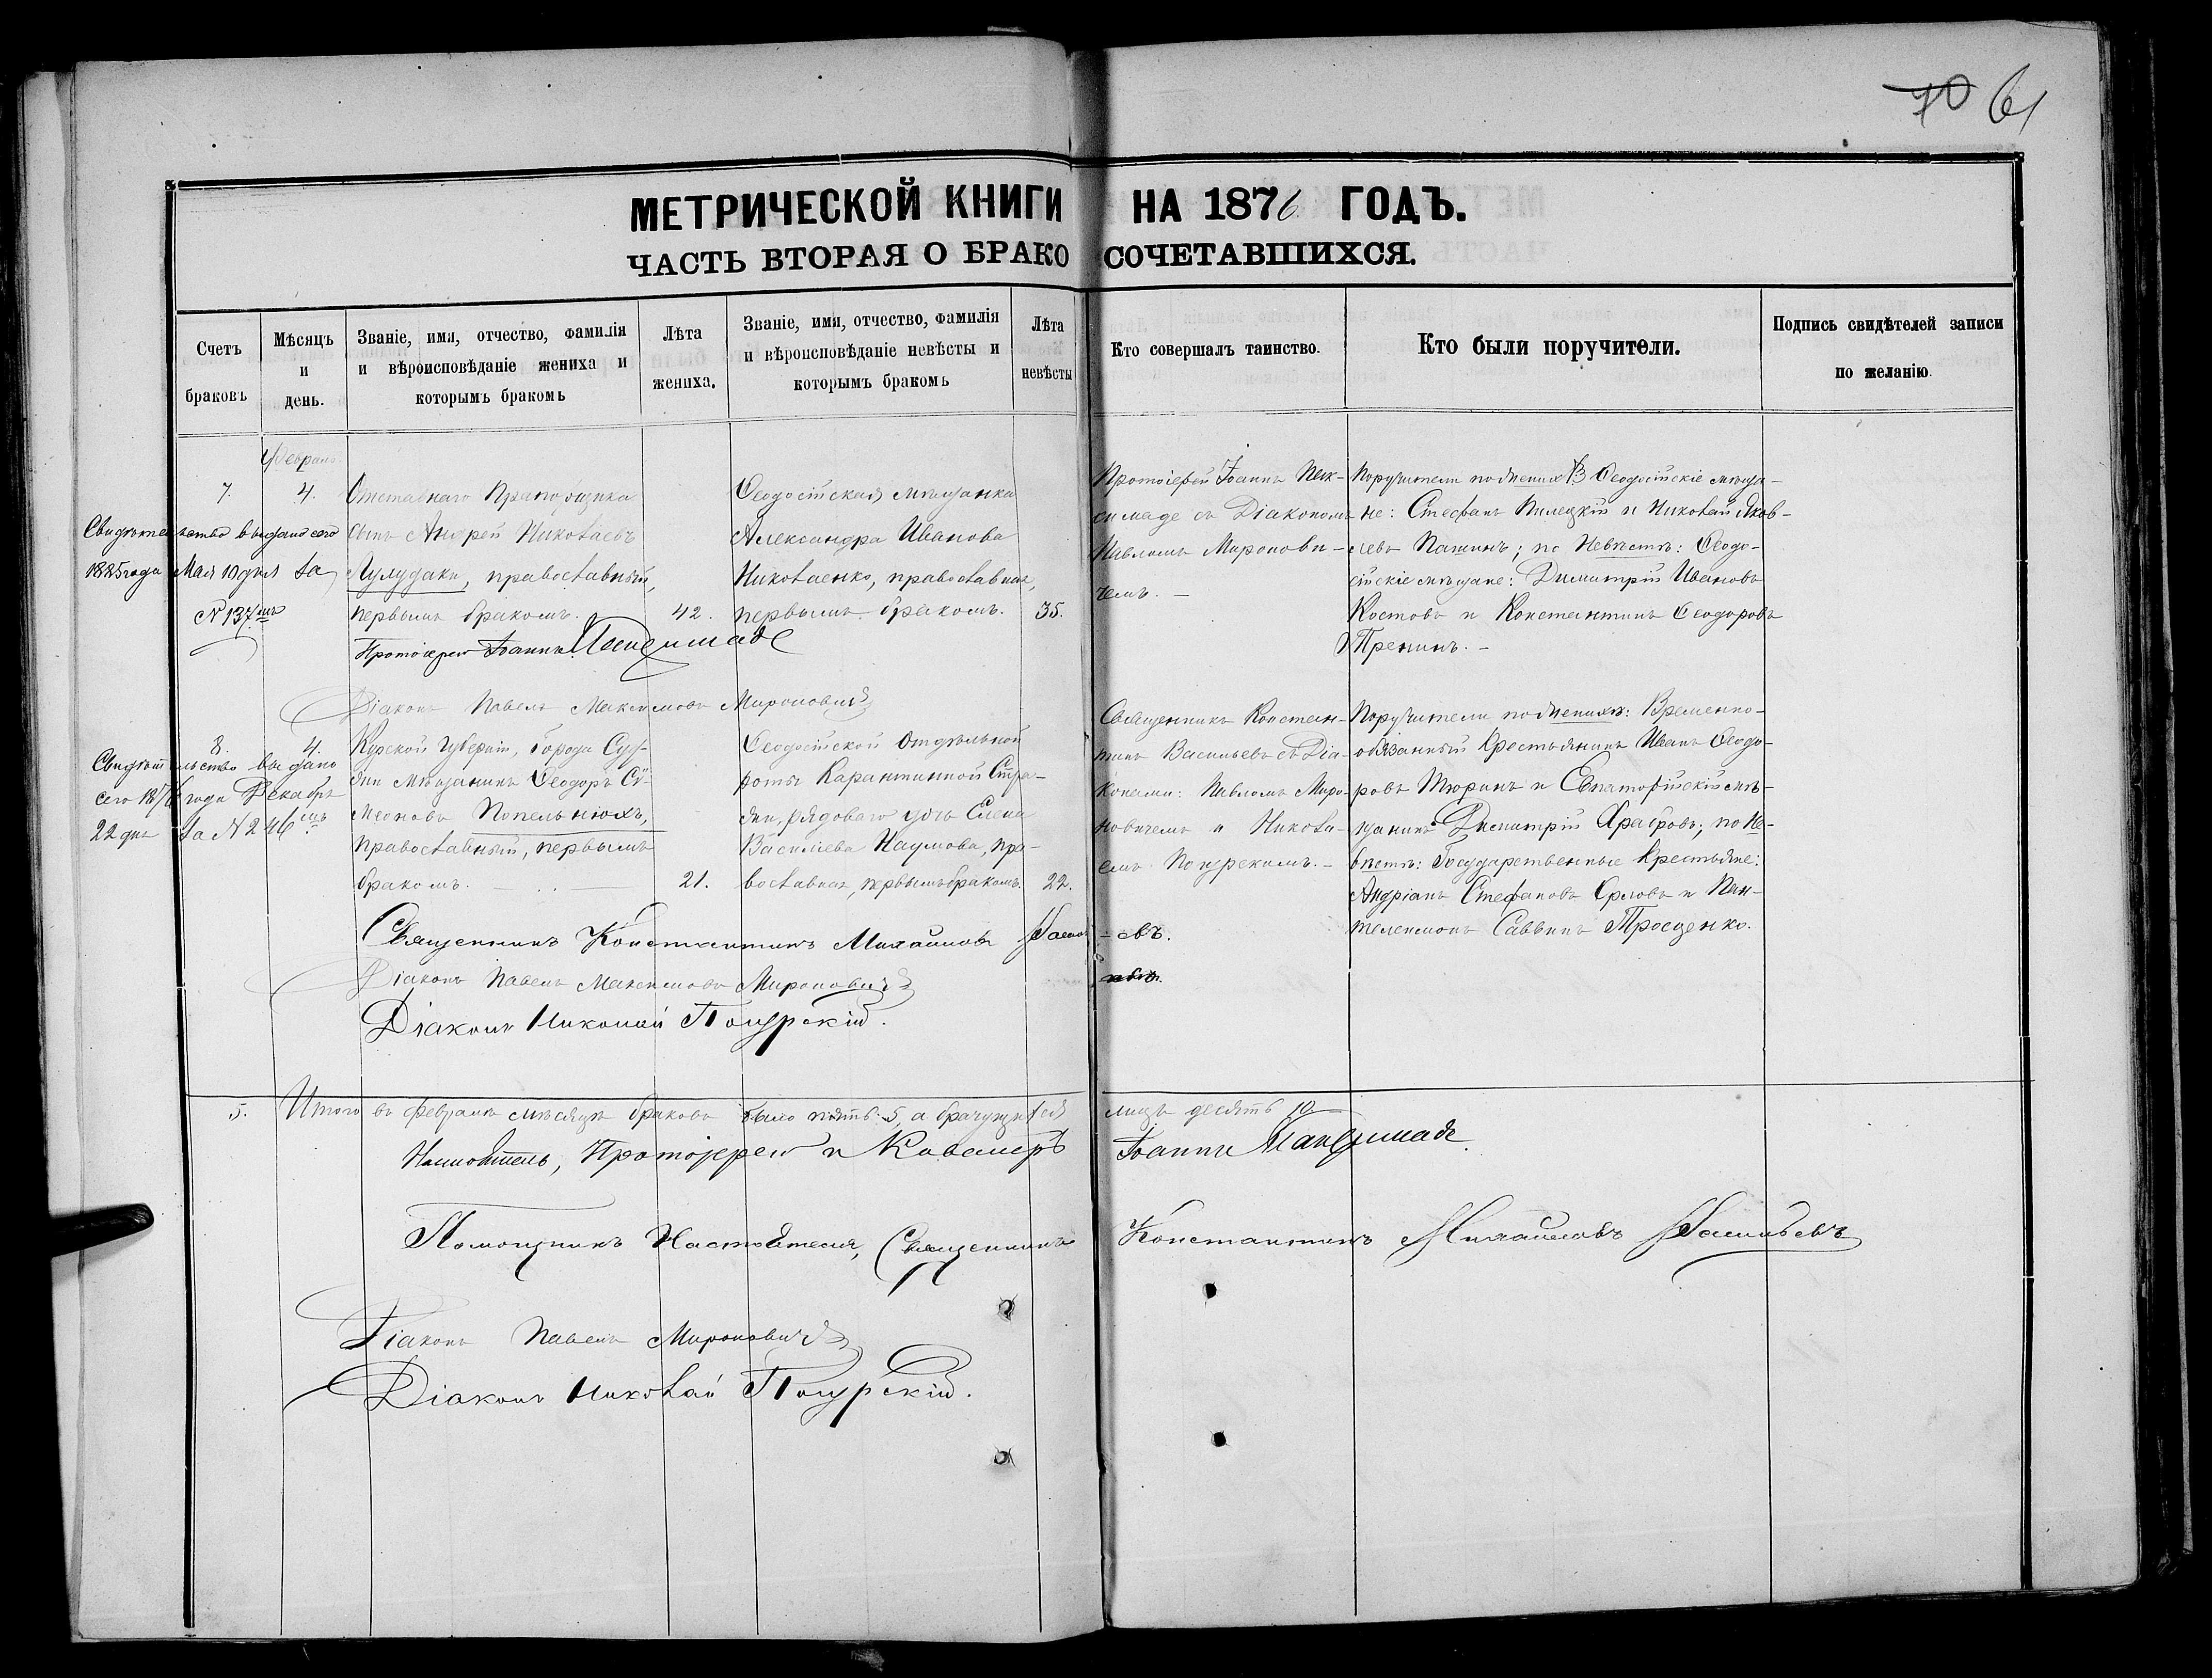 70 61
МЕТРИЧЕСКОЙ КНИГИ НА 1876 ГОДЪ.
ЧАСТЬ ВТОРАЯ О БРАКОСОЧЕТАВШИХСЯ.
Счетъ браковъ
Мѣсяцъ и день.
Званіе, имя, отчество, фамилія и вѣроисповѣданіе жениха и которымъ бракомъ
Лѣта жениха.
Званіе, имя, отчество, фамилія и вѣроисповѣданіе невѣсты и которымъ бракомъ
Лѣта невѣсты
Кто совершалъ таинство.
Кто были поручители.
Подпись свидѣтелей записи по желанію.
7.
Февраль
4.
Свидѣтельство выдано сего
1885 года Мая 10 дня за
№ 137мъ
Отставнаго Прапорщика
сынъ Андрей Николаевъ
Лулудаки, православный,
первымъ бракомъ.
42.
Ѳеодосійская мѣщанка
Александра Иванова
Николаенко, православная,
первымъ бракомъ.
35.
Протоіерей Іоаннъ
съ Діакономъ
Павломъ Миронови-
чемъ. –
Поручители по женихѣ Ѳеодосійскіе мѣща-
не: Стефанъ Пилецкій и Николай Яков-
левъ Пашинъ; по Невѣстѣ: Ѳеодо-
сійскіе мѣщане: Димитрій Ивановъ
Костовъ и Константинъ Ѳеодоровъ
Пренинъ. –
Протоіерей Іоаннъ
Діаконъ Павелъ Максимовъ Мироновичъ
8.
4.
Свидѣтельство выдано
сего 1876 года Декабря
22 дня за № 246мъ
Курской Губерніи, города Суд-
жи мѣщанинъ Ѳеодоръ Си-
меоновъ Попельнюхъ,
православный, первымъ
бракомъ.
21.
Ѳеодосійской Отдѣльной
роты Карантинной Стра-
жи, рядоваго дочь Елена
Василіева Наумова, пра-
вославная, первымъ бракомъ.
22.
Священникъ Констан-
тинъ Васильевъ съ Діа-
конами: Павломъ Миро-
новичемъ и Никола-
емъ Погурскимъ. –
Поручители по женихѣ: Временно-
обязанный Крестьянинъ Иванъ Ѳеодо-
ровъ Тюринъ и Евпаторійскій мѣ-
щанинъ Димитрій Храбровъ; по Не-
вѣстѣ: Государственные Крестьяне:
Андріанъ Стефановъ Орловъ и Пан-
телеимонъ Саввинъ Трощенко.
Священникъ Константинъ Михаиловъ Василь-евъ.
Діаконъ Павелъ Максимовъ Мироновичъ
Діаконъ Николай Погурскій.
5. Итого въ февралѣ мѣсяцѣ браковъ было пять 5, а брачущихся лицъ десять 10
Настоятель, Протоіерей и Кавалеръ Іоаннъ
Помощникъ Настоятеля, Священникъ Константинъ Михаиловъ Васильевъ
Діаконъ Павелъ Мироновичъ
Діаконъ Николай Погурскій.